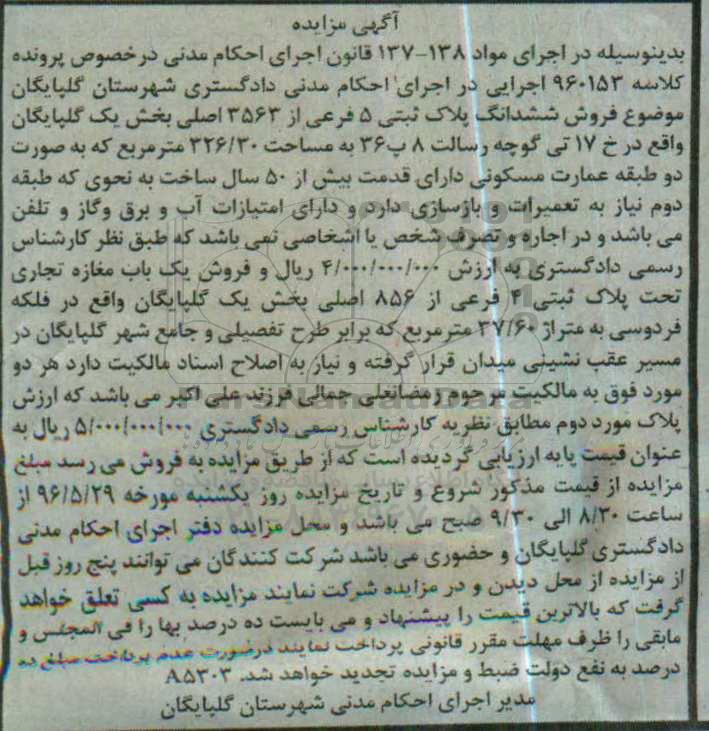 آگهی مزایده
بدینوسیله در اجرای مواد ۱۳۸-۱۳۷ قانون اجرای احکام مدنی درخصوص پرونده
کلاسه ۹۶۰۱۵۳ اجرایی در اجرای احکام مدنی دادگستری شهرستان گلپایگان
موضوع فروش ششدانگ پلاک ثبتی ۵ فرعی از ۳۵۶۳ اصلی بخش یک گلپایگان
واقع در خ ۱۷ تی گوچه رسالت ۸ پ۳۶ به مساحت ۳۲۶/۳۰ مترمربع که به صورت
دو طبقه عمارت مسکونی دارای قدمت بیش از ۵۰ سال ساخت به نحوی که طبقه
دوم نیاز به تعمیرات و بازسازی دارد و دارای امتیازات آب و برق وگاز و تلفن
می باشد و در اجاره و تصرف شخص یا اشخاصی نمی باشد که طبق نظر کارشناس
رسمی دادگستری به ارزش ۴/۰۰۰/۰۰۰/۰۰۰ ریال و فروش یک باب مغازه تجاری
تحت پلاک ثبتی ۴ فرعی از ۸۵۶ اصلی بخش یک گلپایگان واقع در فلکه
فردوسی به متراژ ۳۷/۶۰ مترمربع که برابر طرح تفصیلی و جامع شهر گلپایگان در
مسیر عقب نشینی میدان قرار گرفته و نیاز به اصلاح اسناد مالکیت دارد هر دو
مورد فوق به مالکیت مرحوم رمضانعلی جمالی فرزند علی اکبر می باشد که ارزش
پلاک مورد دوم مطابق نظریه کارشناس رسمی دادگستری ۵/۰۰۰/۰۰۰/۰۰۰ ریال به
عنوان قیمت پایه ارزیابی گردیده است که از طریق مزایده به فروش می رسد مبلغ
مزایده از قیمت مذکور شروع و تاریخ مزایده روز یکشنبه مورخه ۹۶/۵/۲۹ از
ساعت ۸/۳۰ الی ۹/۳۰ صبح می باشد و محل مزایده دفتر اجرای احکام مدنی
دادگستری گلپایگان و حضوری می باشد شرکت کنندگان می توانند پنج روز قبل
از مزایده از محل دیدن و در مزایده شرکت نمایند مزایده به کسی تعلق خواهد
گرفت که بالاترین قیمت را پیشنهاد و می بایست ده درصد بها را فی المجلس و
مابقی را ظرف مهلت مقرر قانونی پرداخت نمایند درصورت عدم پرداخت مبلغ ده
درصد به نفع دولت ضبط و مزایده تجدید خواهد شد. ۸۵۳۰۳A
مدیر اجرای احکام مدنی شهرستان گلپایگان